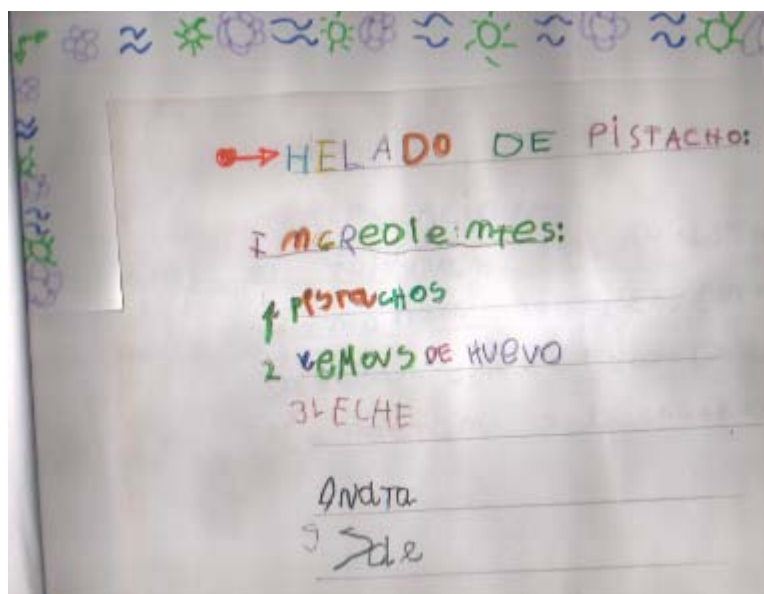 HELADO DE PISTACHO:
Ingredientes:
1 PISTACHOS
2 YEMAS DE HUEVO
3 LECHE
4 NATA
5